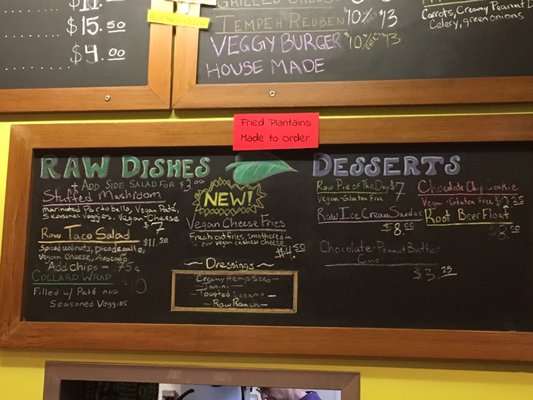 $15.50
$4.00
Tempeh Reuben
10½ $13
Veggy Burger
10½ $13
House Made
Carrots, Creamy Peanut
Celery, green onions
Fried Plantains
Made to order
Raw Dishes
+ Add Side Salad for $3.00
Stuffed Mushroom
marinated Portobello, Vegan Paté,
Seasonal veggies, Vegan Cheese
$7
Raw Taco Salad
$11.50
Spiced walnuts, Pico de gallo,
Vegan cheese, Avocado
Add chips - .75¢
Collard Wrap
10
Filled w/ Paté and
Seasoned Veggies
NEW!
Vegan Cheese Fries
Fresh cut fries, smothered in
our vegan cashew cheese
$4.50
Dressings
Creamy Hemp Seed
Tahini
Toasted Sesame
Raw Ranch
Desserts
Raw Pie of The Day $7
Vegan-Gluten Free
Raw Ice Cream Sundae
$8.00
Chocolate-Peanut Butter
Cup
$3.25
Chocolate Chip Cookie
Vegan-Gluten Free
Root Beer Float